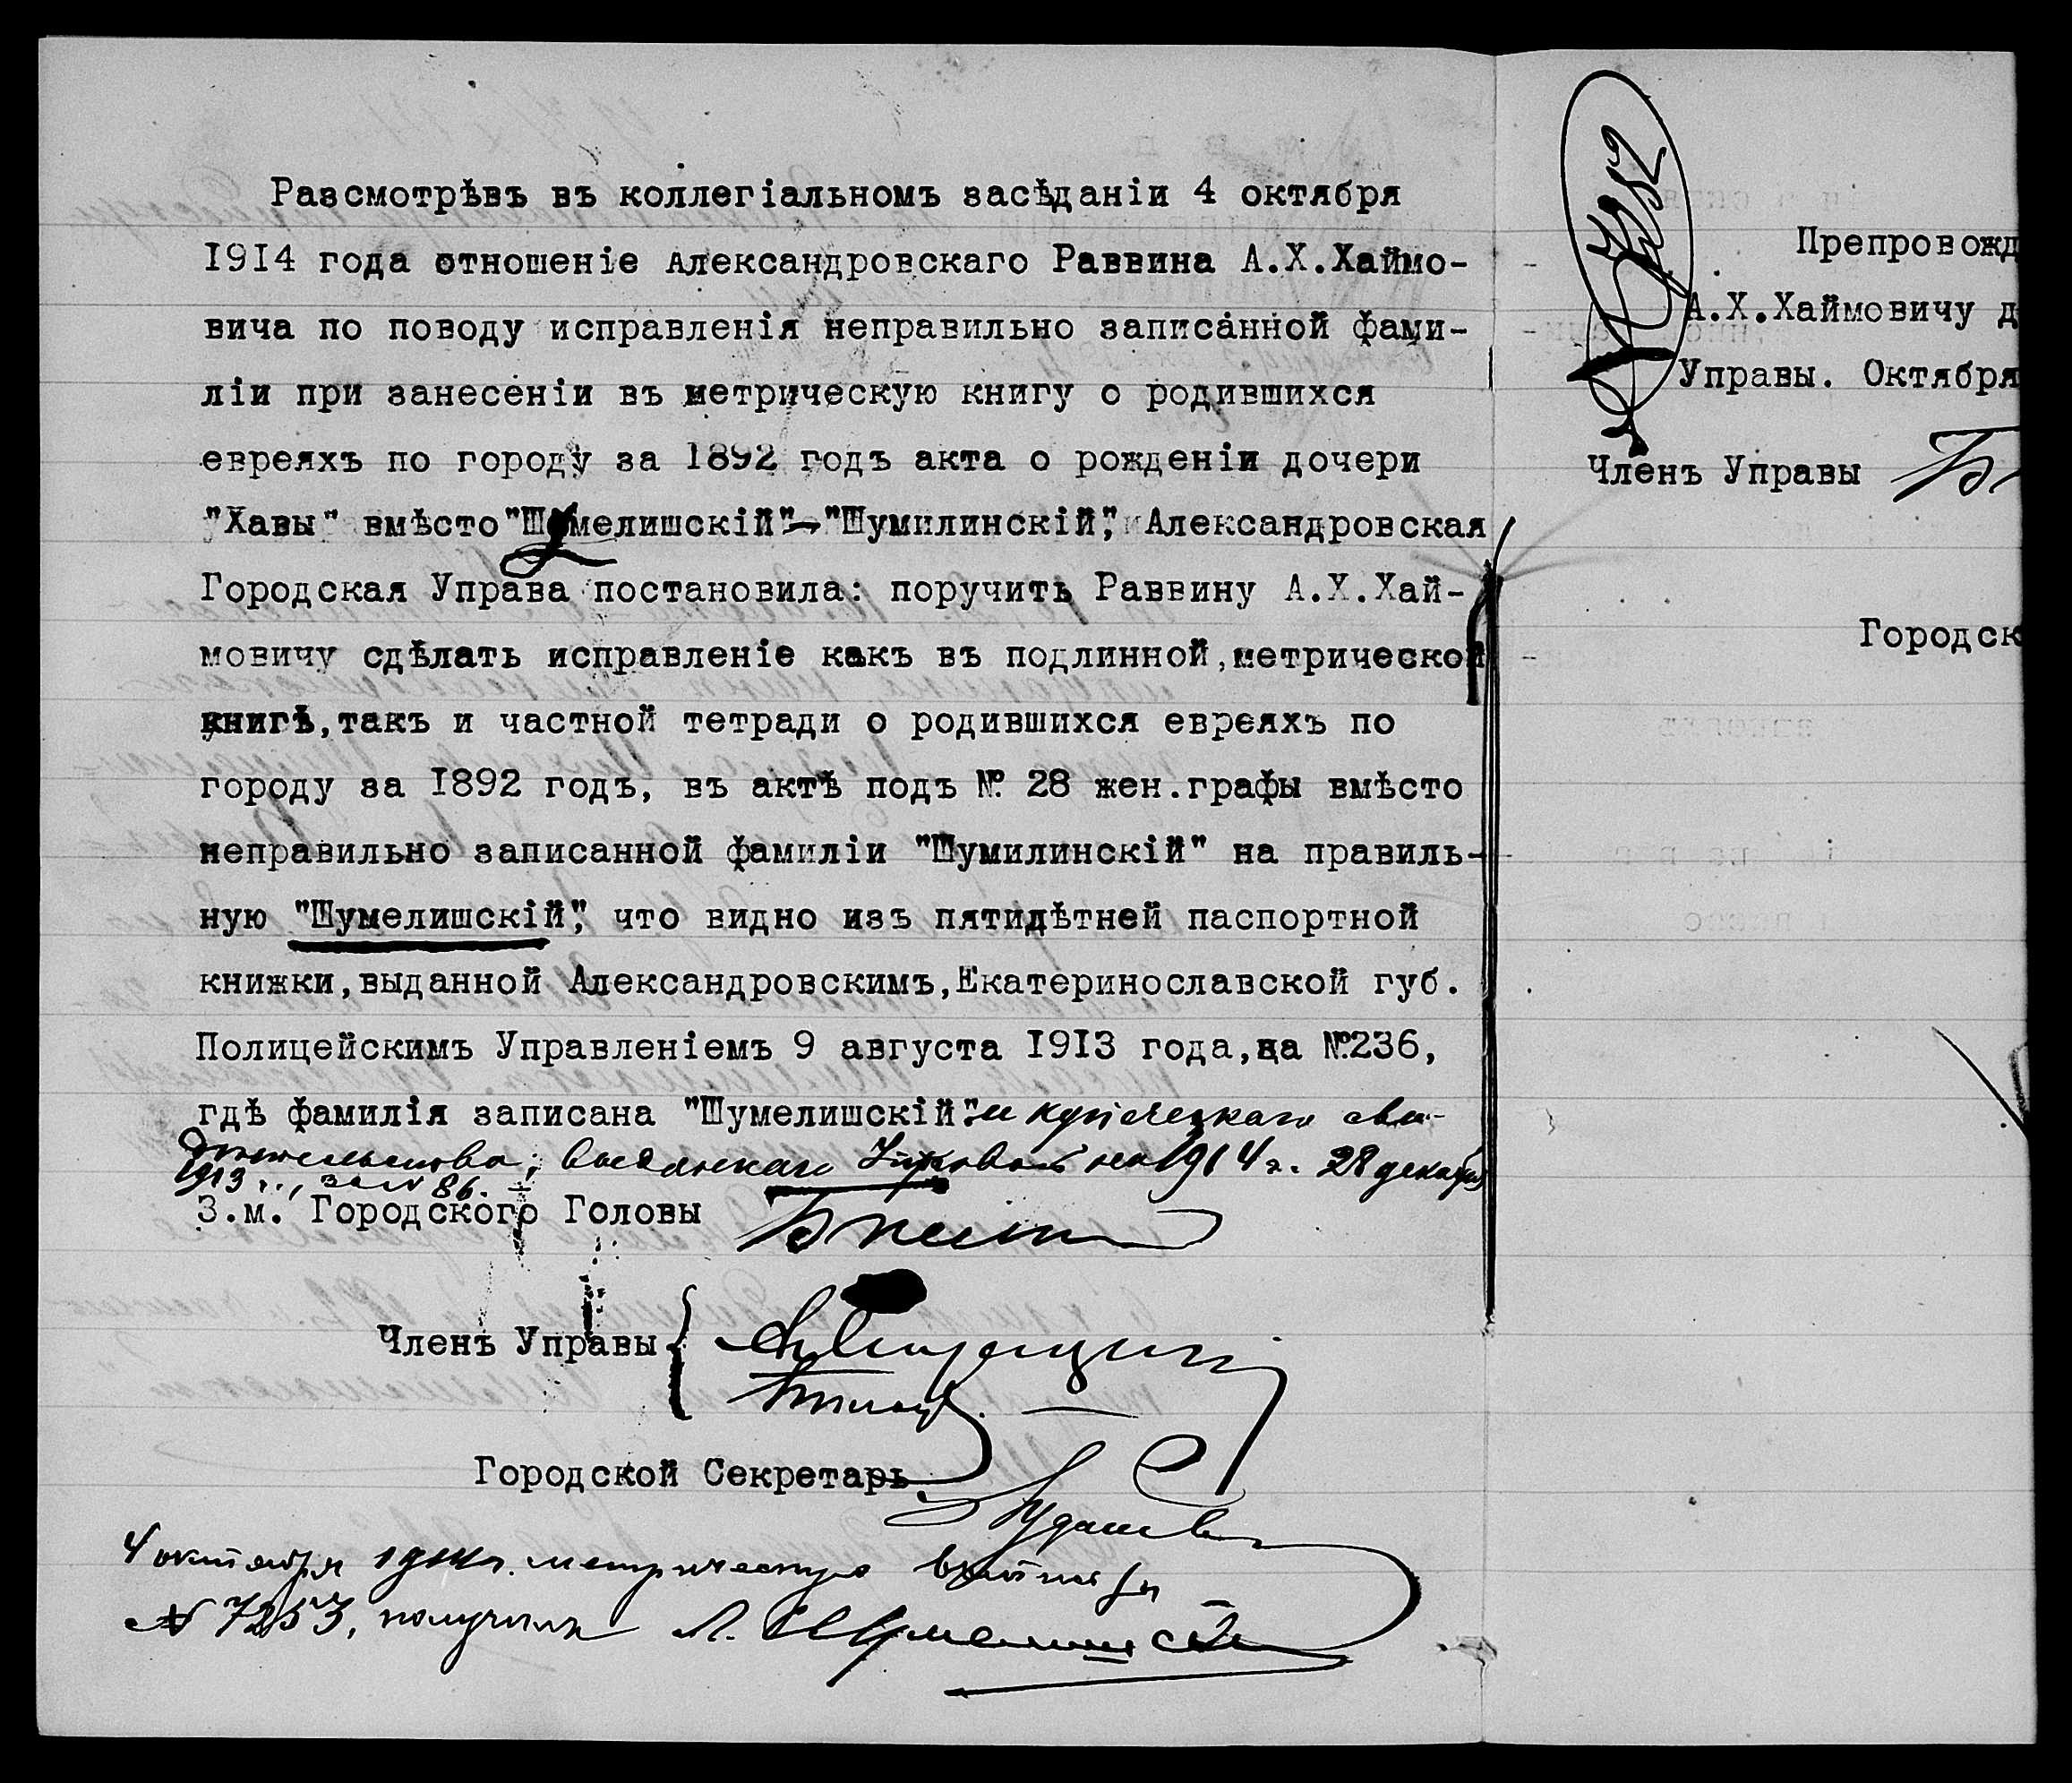 Разсмотрѣвъ въ коллегіальномъ засѣданіи 4 октября
1914 года отношеніе Александровскаго Раввина А.Х.Хаймо-
вича по поводу исправленія неправильно записанной фами-
ліи при занесеніи въ метрическую книгу о родившихся
евреяхъ по городу за 1892 годъ акта о рожденіи дочери
"Хавы" вмѣсто "Шумелишскій" - "Шумилинскій", Александровская
Городская Управа постановила: поручить Раввину А.Х.Хай-
мовичу сдѣлать исправленіе какъ въ подлинной,метрической
книгѣ,такъ и частной тетради о родившихся евреяхъ по
городу за 1892 годъ, въ актѣ подъ № 28 жен.графы вмѣсто
неправильно записанной фамиліи "Шумилинскій" на правиль-
ную "Шумелишскій", что видно изъ пятилѣтней паспортной
книжки,выданной Александровскимъ,Екатеринославской губ.
Полицейскимъ Управленіемъ 9 августа 1913 года,за №236,
гдѣ фамилія записана "Шумелишскій". и купеческаго сви-
дѣтельства, выданнаго Управой на 1914 г. 28 декабря
1913 г., за № 86.
З.м. Городского Головы
Членъ Управы
Городской Секретарь
4 октября 1914 г. метрическую
№ 7253, получилъ Л. Шумелишскій
Препровожд
А.Х.Хаймовичу д
Управы. Октября
Членъ Управы
Городск